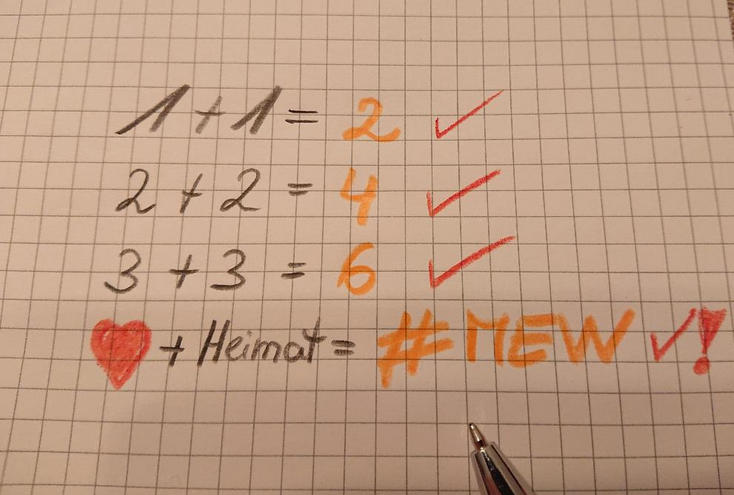 1 + 1 = 2 ✓
2 + 2 = 4 ✓
3 + 3 = 6 ✓
♥ + Heimat = #MEW ✓!